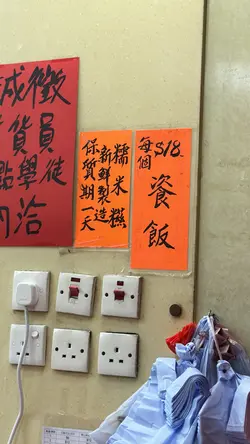 誠徵
貨員
點學徒
內洽
糯米糍
新鮮製造
保質期一天
每個$18.
餈飯